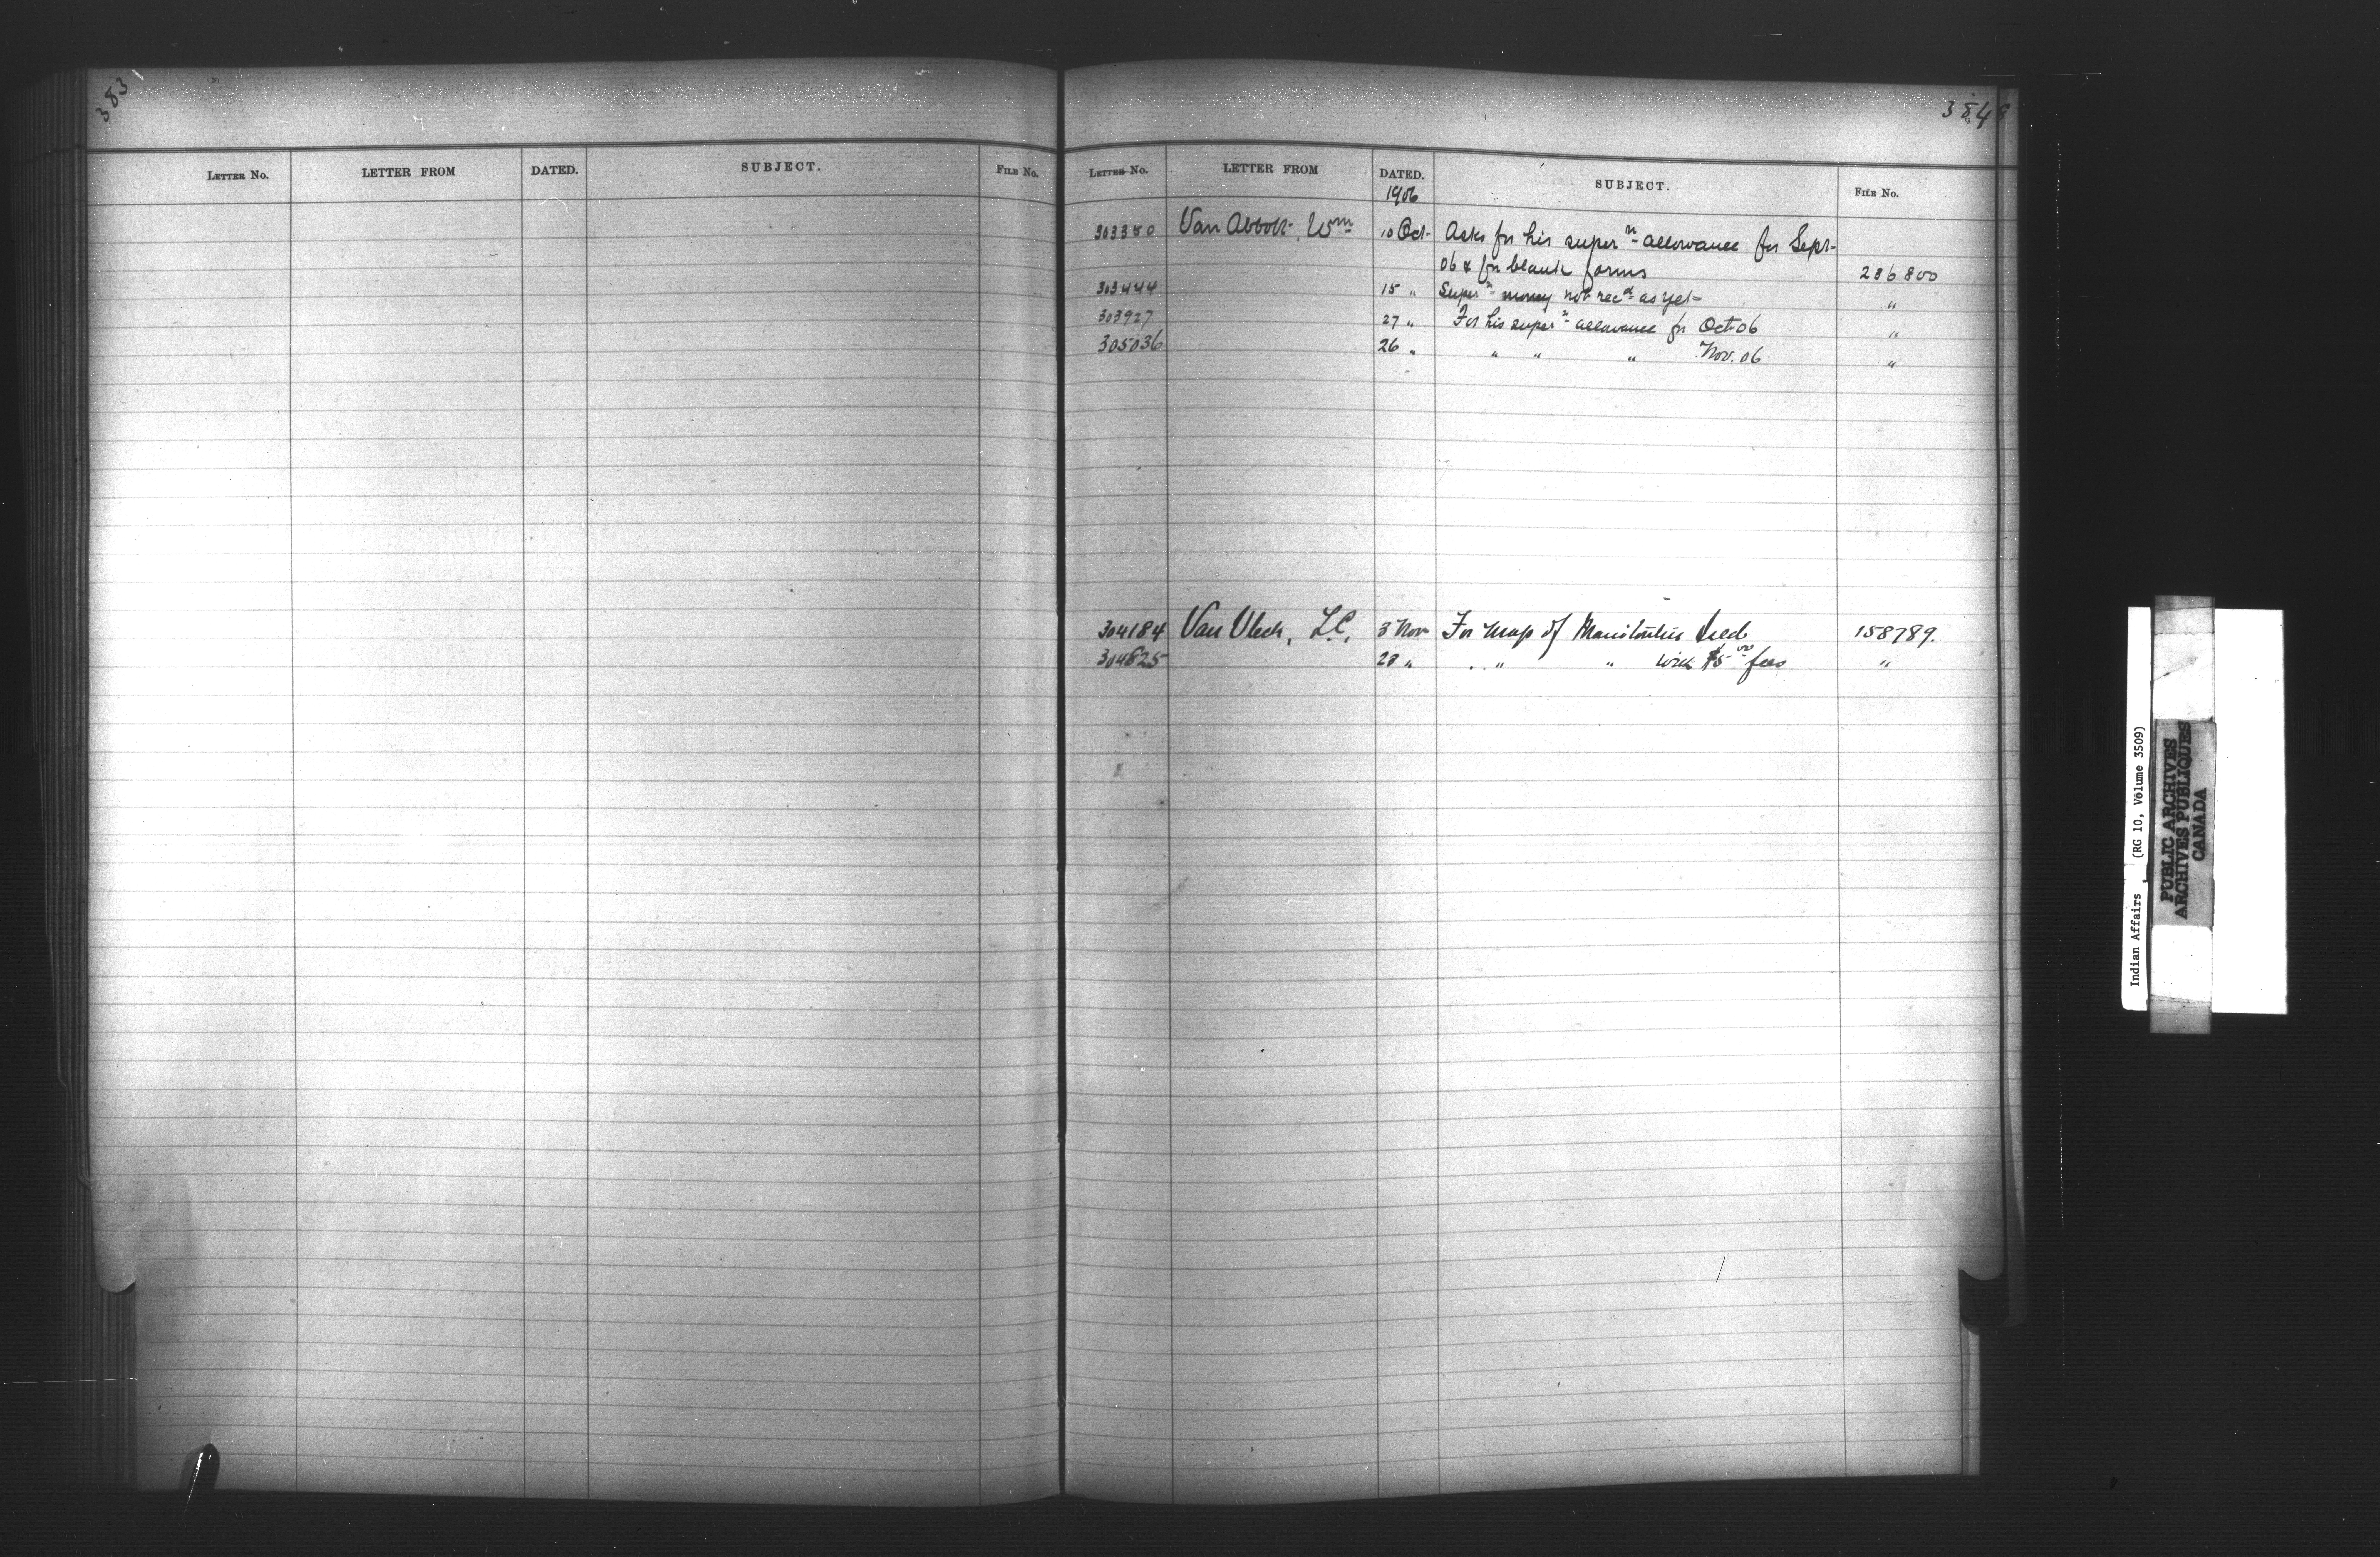 383
LETTER NO. LETTER FROM DATED. SUBJECT. FILE NO.
384
LETTER NO. LETTER FROM DATED. SUBJECT. FILE NO.
1906
303350 Van Abbott, Wm 10 Oct. Asks for his supern allowance for Sept-
06 & for blank forms 286800
303444 15 " Supern money not recd as yet "
303927 27 " For his supern allowance for Oct 06 "
305036 26 " " " " Nov. 06 "
304184 Van Vleck, L.C. 3 Nov For Map of Manitoulin 158789.
304825 28 " " " with $5 00 fees "
Indian Affairs (RG 10, Volume 3509)
PUBLIC ARCHIVES
ARCHIVES PUBLIQUES
CANADA